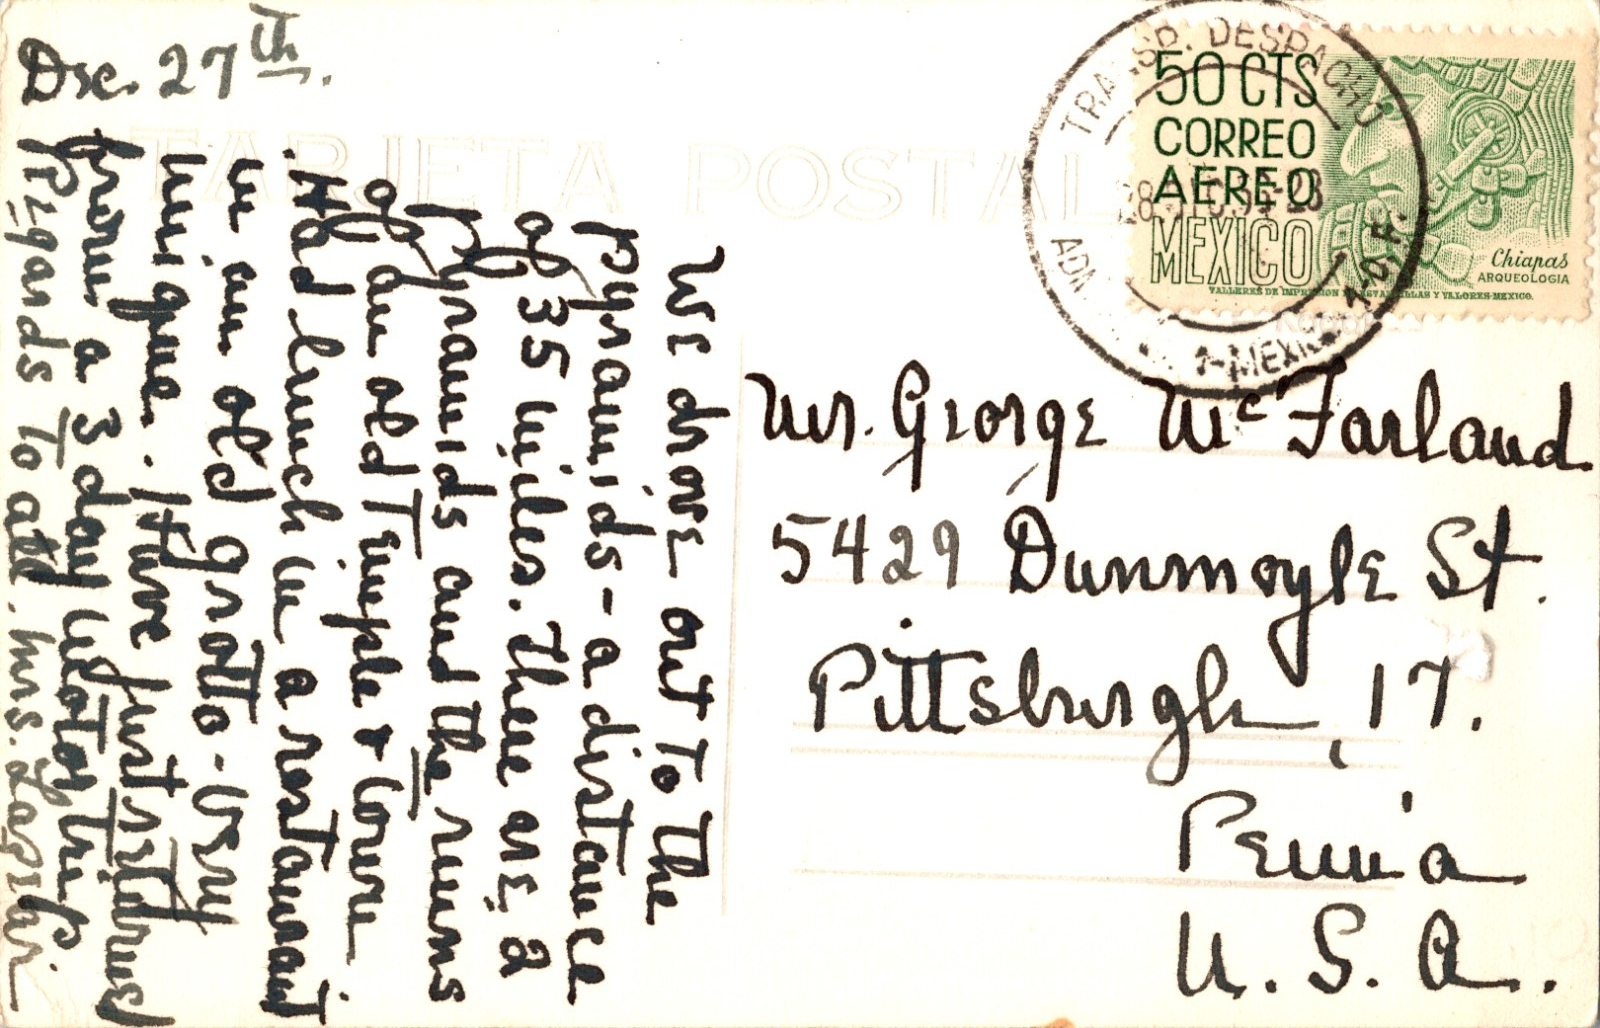 Dec. 27th.
We drove out to the
pyramids - a distance
of 35 miles. There are 2
pyramids and the ruins
of an old Temple & town
. Had lunch in a restaurant
in an old grotto - very
unique. Have just returned
from a 3 day motor trip
Regards to all. Mrs.
TARJETA POSTAL
50 CTS
CORREO
AEREO
MEXICO
Chiapas
ARQUEOLOGIA
TALLERES DE IMPRESION DE ESTAMPILLAS Y VALORES-MEXICO.
TRANSP. DESPACHO
Mr. George McFarland.
5429 Dunmoyle St.
Pittsburgh, 17.
Penn'a
U. S. A.